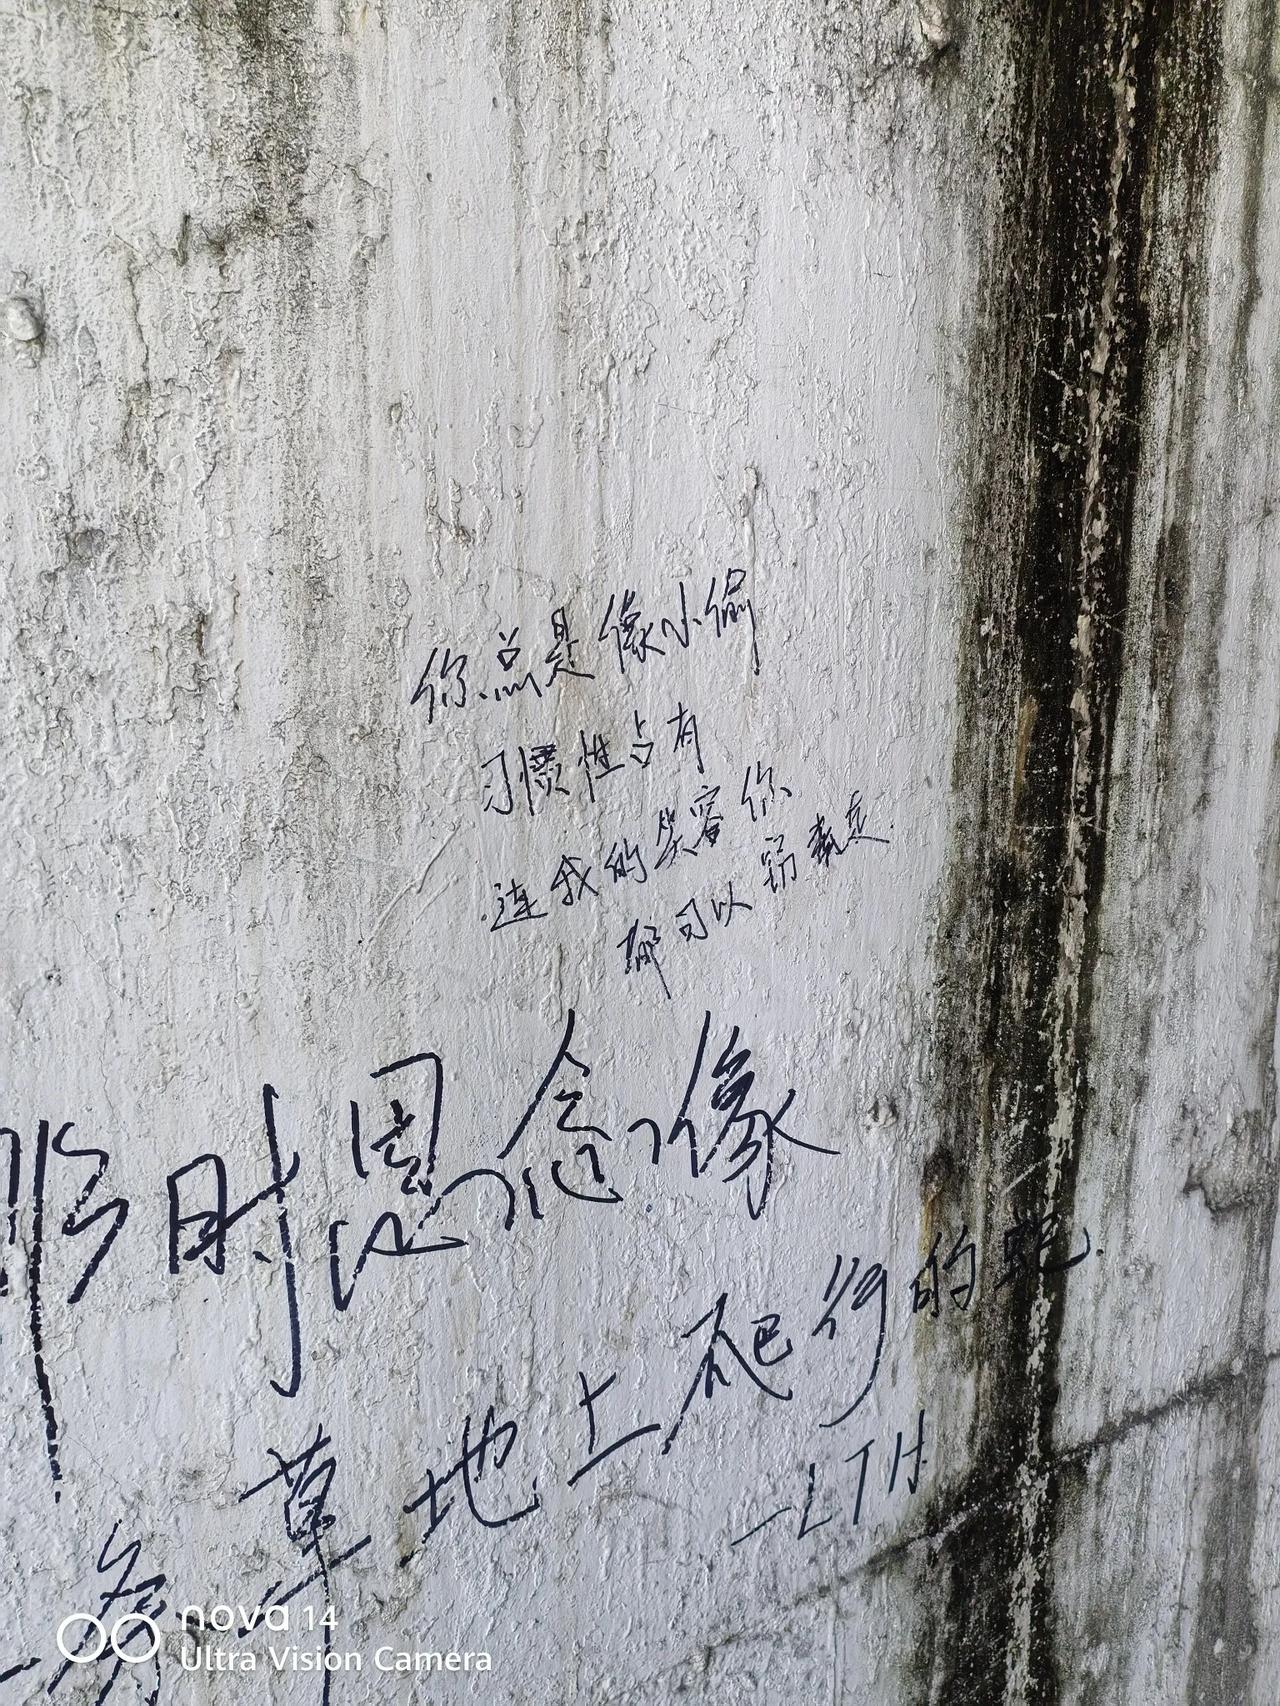 你总是像小偷
习惯性占有
连我的笑容你
都可以窃走
时思念像
草地上爬行的蛇
-LTH
nova 14
Ultra Vision Camera